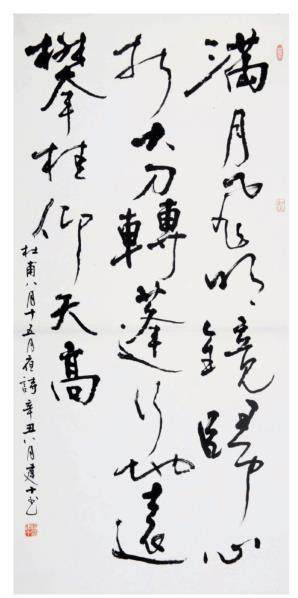 滿月飛明鏡歸心
折大刀轉蓬行地遠
攀桂仰天高
杜甫八月十五月夜詩辛丑八月建